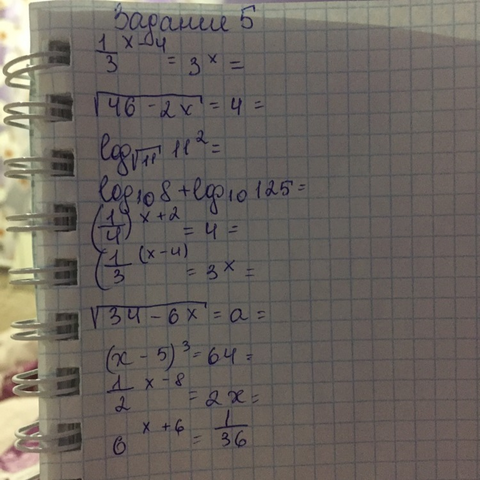 Задание 5
1/3 ^x-4 = 3^x =
√46 - 2x = 4 =
log√11 11² =
log₁₀8 + log₁₀125 =
(1/4)^x+2 = 4 =
(1/3 ^(x-4) = 3^x =
√34 - 6x = a =
(x - 5)³ = 64 =
1/2 ^x-8 = 2x =
6^x+6 = 1/36